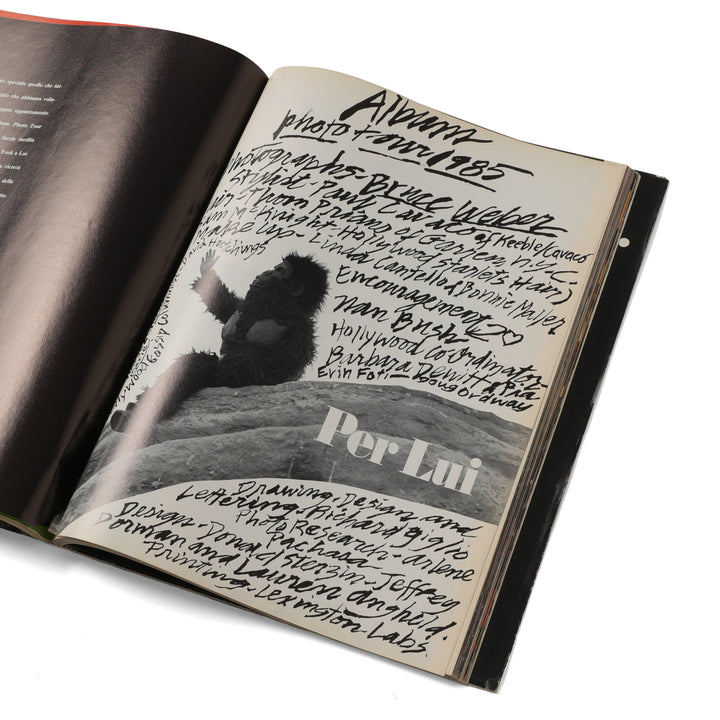 speciale quelle che ini-
che abbiamo volu-
appuntamento
Photo Tour
faccia inedita
York a Los
ricerca
della
Album
photo tour 1985
Photographs - Bruce Weber
Stylist - Paul Cavaco of Keeble/Cavaco
Hair - Thom Priano of Garren, N.Y.C.
McKnight - Hollywood Starlets Hair)
Make up - Linda Cantello & Bonnie Maller
Hutchings
Encouragement ♡
Nan Bush
Hollywood Coordinator
Barbara Dewitt &
Evin Foti -
Gossip
Per Lui
Drawing, Design, and
Lettering - Richard Giglio
Photo Research - Arlene
Pachasa
Design - Donald Sterzin, Jeffrey
Dorman and Lauren
Printing - Lexington Labs.